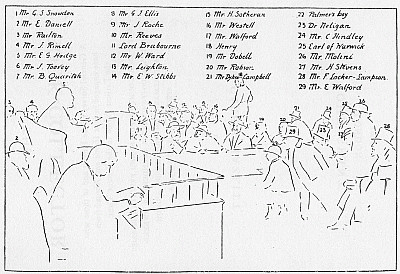 1 Mr G. S. Snowden
2 Mr E. Daniell
3 Mr Railton
4 Mr J. Rimell
5 Mr E. G. Hedge
6 Mr J. Toovey
7 Mr B. Quaritch
8 Mr G. J. Ellis
9 Mr J. Roche
10 Mr Reeves
11 Lord Brabourne
12 Mr W. Ward
13 Mr Leighton
14 Mr E. W. Stibbs
15 Mr H. Sotheran
16 Mr Westell
17 Mr Walford
18 Henry
19 Mr Dobell
20 Mr Robson
21 Mr Dykes Campbell
22 Palmer's boy
23 Dr Neligan
24 Mr C Hindley
25 Earl of Warwick
26 Mr. Molini
27 Mr. H Stevens
28 Mr F Locker-Sampson
29 Mr. E Walford